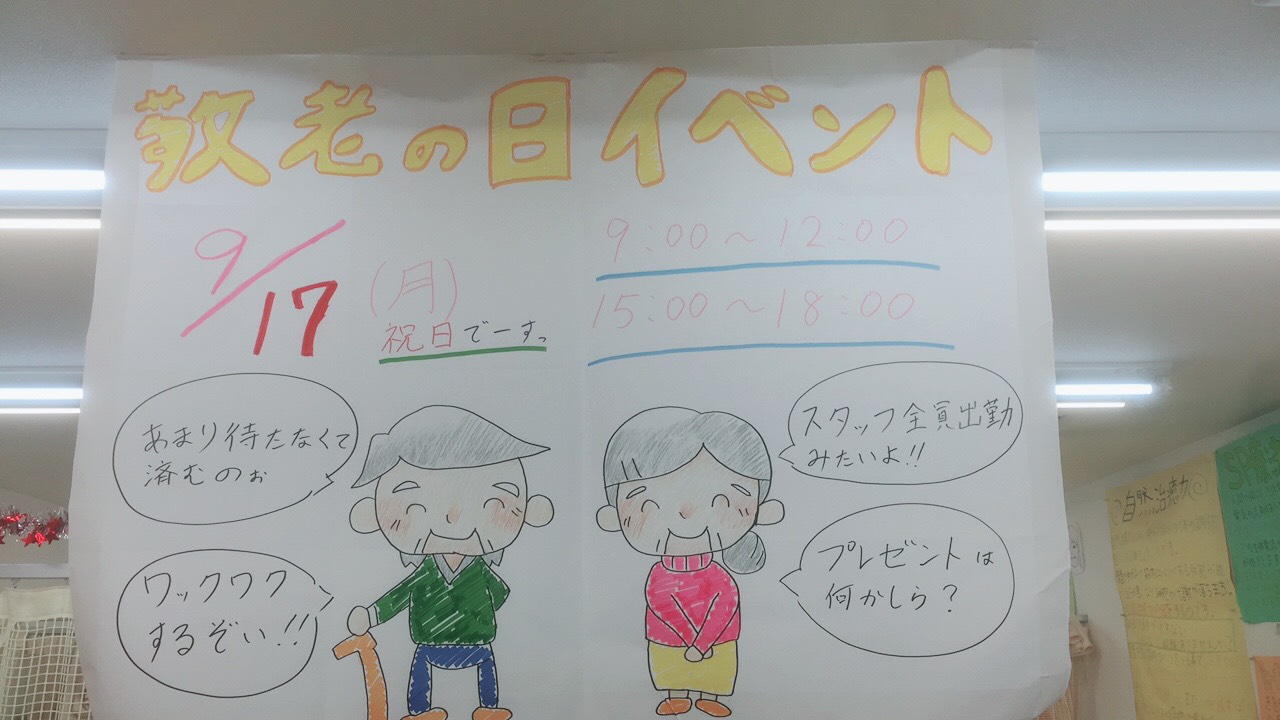 敬老の日イベント
9/17(月)
祝日でーすっ
9:00～12:00
15:00～18:00
あまり待たなくて
済むのぉ
ワックワク
するぞい!!
スタッフ全員出勤
みたいよ!!
プレゼントは
何かしら?